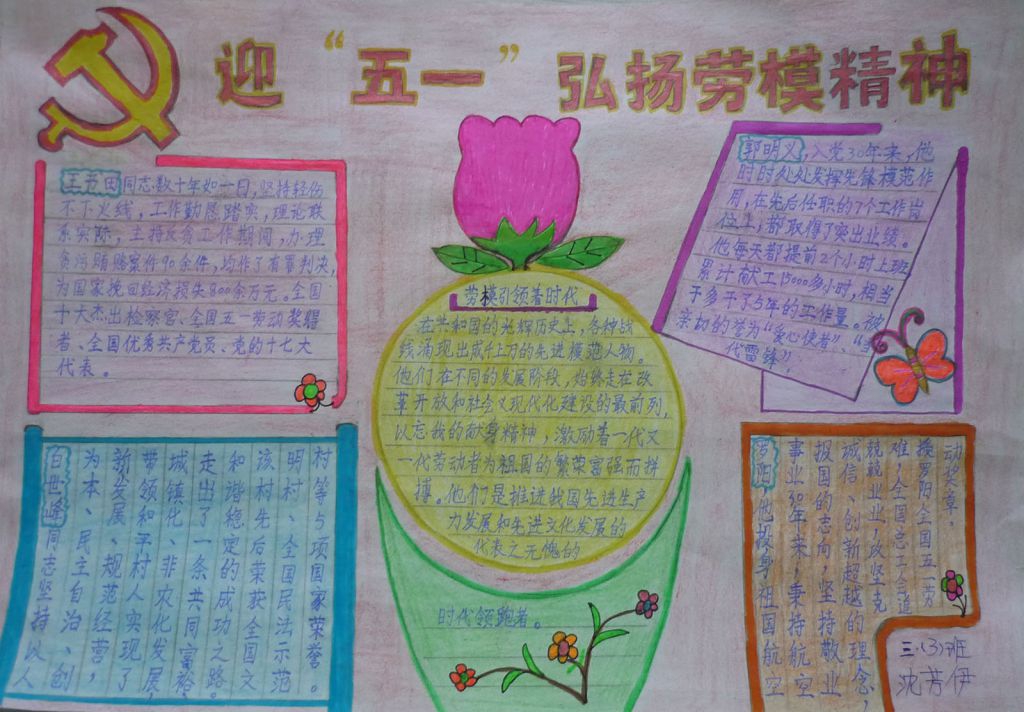 迎“五一”弘扬劳模精神
王书田同志数十年如一日,坚持轻伤
不下火线,工作勤恳踏实,理论联
系实际,主持反贪工作期间,办理
贪污贿赂案件90余件,均作了有罪判决,
为国家挽回经济损失800余万元。全国
十大杰出检察官、全国五一劳动奖获得
者、全国优秀共产党员、党的十七大
代表。
劳模引领着时代
在共和国的光辉历史上,各种战
线涌现出成千上万的先进模范人物。
他们在不同的发展阶段,始终走在改
革开放和社会义现代化建设的最前列,
以忘我的献身精神,激励着一代又
一代劳动者为祖国的繁荣富强而拼
搏。他们是推进我国先进生产
力发展和先进文化发展的
代表之无愧的
时代领跑者。
郭明义,入党30年来,他
时时处处发挥先锋模范作
用,在先后任职的7个工作岗
位上,都取得了突出业绩。
他每天都提前2个小时上班
累计献工15000多小时,相当
于多干了5年的工作量。被
亲切的誉为“爱心使者”、“当
代雷锋”。
白世峰同志坚持以人
为本、民主自治、创
新发展、规范经营,
带领和平村人实现了
城镇化、非农化发展,
走出了一条共同富裕
和谐稳定的成功之路。
该村先后荣获全国文
明村、全国民法示范
村等与项国家荣誉。
罗阳,他投身祖国航空
事业30年来,秉持航空
报国的志向,坚持敬业
诚信、创新超越的理念,
兢兢业业,攻坚克
难,全国总工会追
授罗阳全国五一劳
动奖章
三.(3)班
沈芳伊